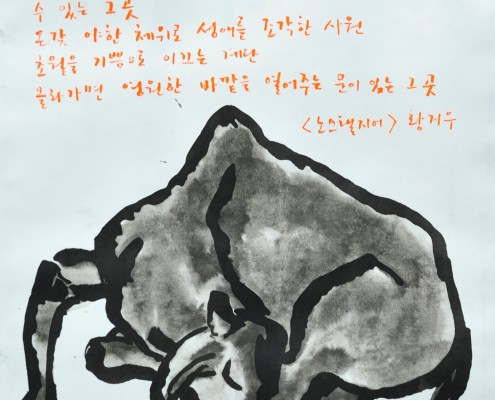 수 있는 그곳
온갖 야한 체위로 성애를 조각한 사원
초월을 기쁨으로 이끄는 계단
올라가면 영원한 바깥을 열어주는 문이 있는 그곳
<노스탤지어> 황지우